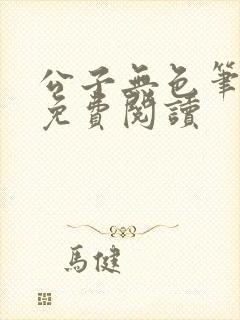 公子無色筆
免費閱讀
馬健